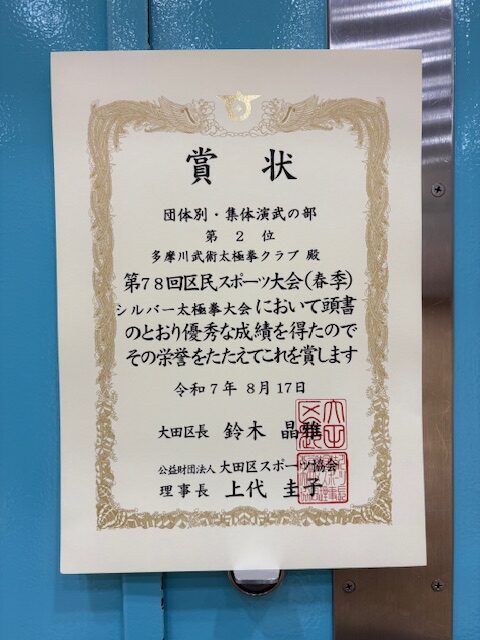 賞状
団体別・集体演武の部
第2位
多摩川武術太極拳クラブ 殿
第78回区民スポーツ大会(春季)
シルバー太極拳大会において頭書
のとおり優秀な成績を得たので
その栄誉をたたえてこれを賞します
令和7年 8月17日
大田区長 鈴木 晶雅
公益財団法人 大田区スポーツ協会
理事長 上代 圭子